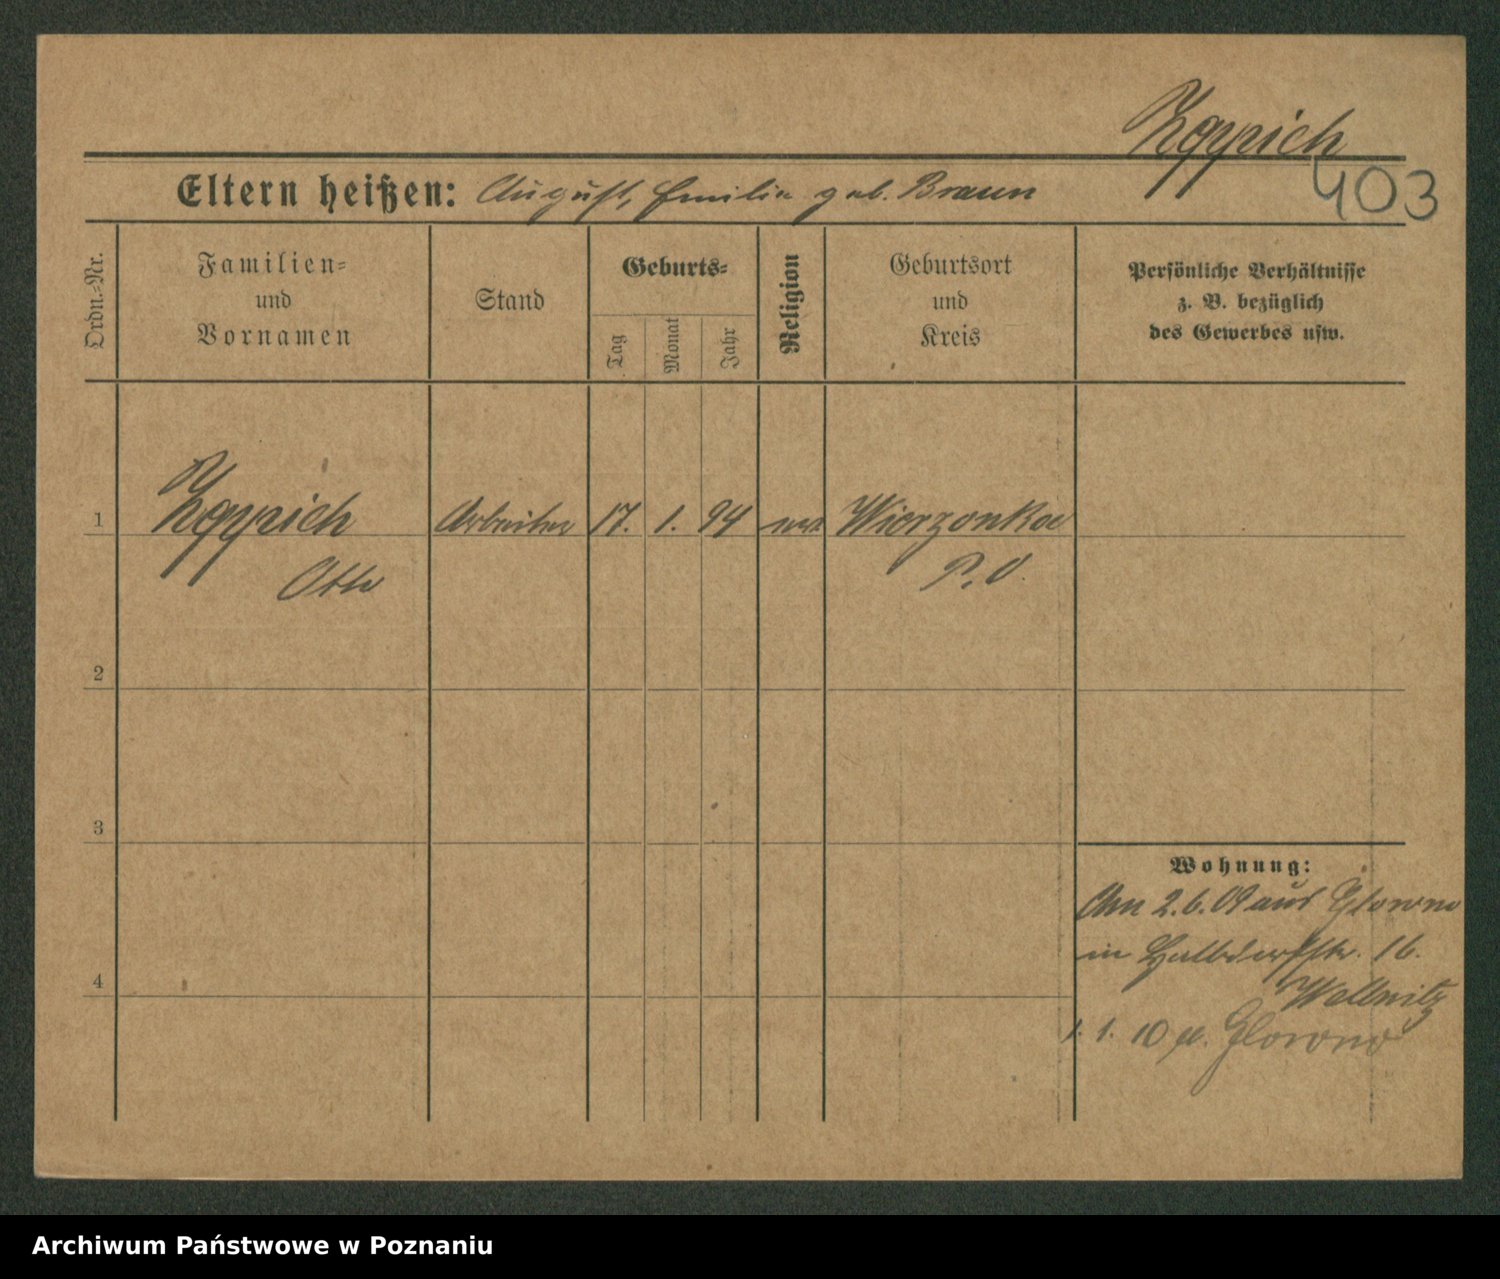 Zqyrich
403
Eltern heißen: August, Emilie geb. Braun
Ordn.-Nr.
Familien-
und
Vornamen
Stand
Geburts-
Tag
Monat
Jahr
Religion
Geburtsort
und
Kreis
Persönliche Verhältnisse
z. B. bezüglich
des Gewerbes usw.
1
Arbeiter 17. 1. 94 Wierzonka
Otto P. O.
2
3
4
Wohnung:
Am 2.6.09 aus Glowno
in Halbdorfstr. 16.
Wellnitz
1. 1. 10 Glowno
Archiwum Państwowe w Poznaniu